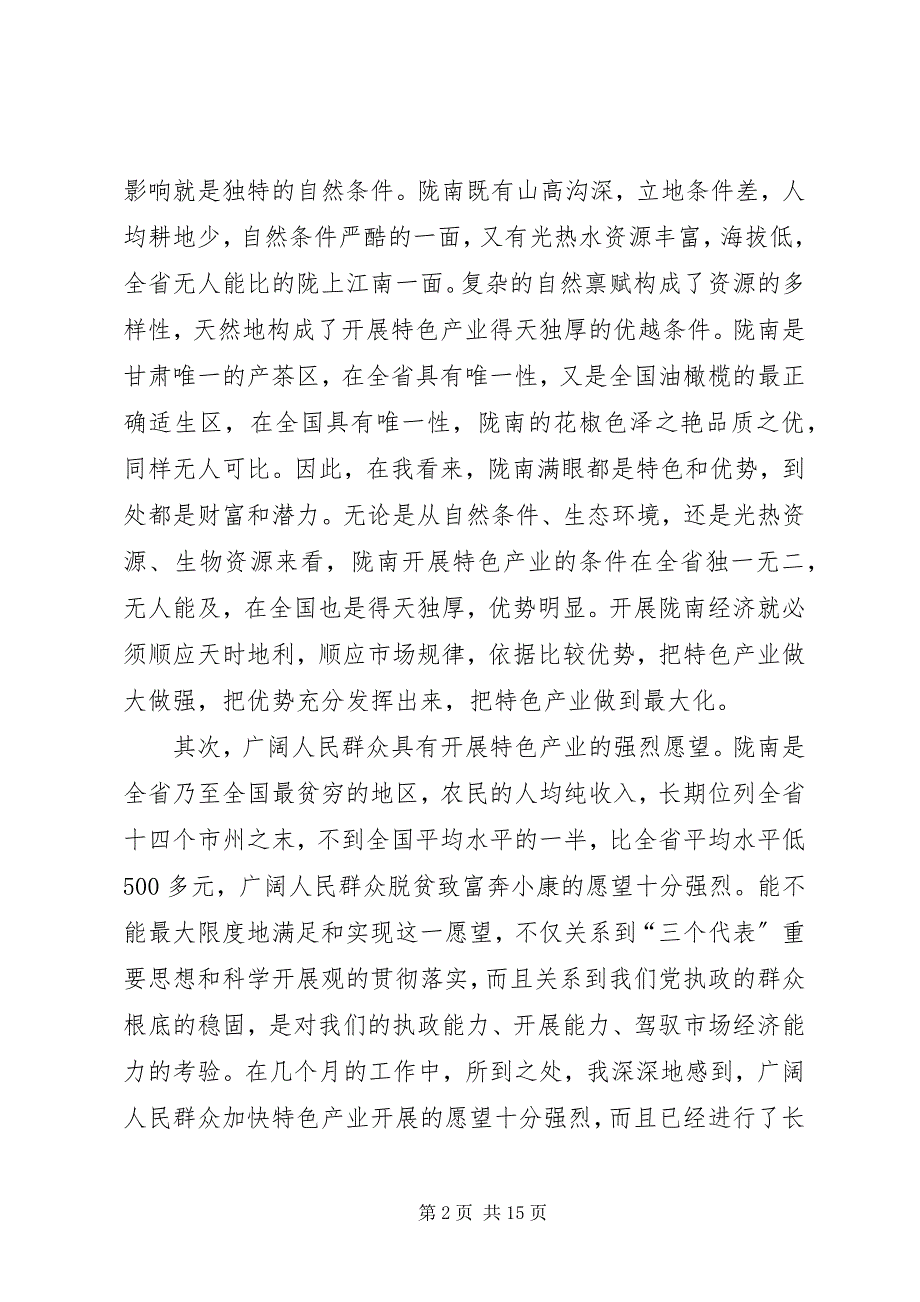 影响就是独特的自然条件。陇南既有山高沟深，立地条件差，人
均耕地少，自然条件严酷的一面，又有光热水资源丰富，海拔低，
全省无人能比的陇上江南一面。复杂的自然禀赋构成了资源的多
样性，天然地构成了开展特色产业得天独厚的优越条件。陇南是
甘肃唯一的产茶区，在全省具有唯一性，又是全国油橄榄的最正
确适生区，在全国具有唯一性，陇南的花椒色泽之艳品质之优，
同样无人可比。因此，在我看来，陇南满眼都是特色和优势，到
处都是财富和潜力。无论是从自然条件、生态环境，还是光热资
源、生物资源来看，陇南开展特色产业的条件在全省独一无二，
无人能及，在全国也是得天独厚，优势明显。开展陇南经济就必
须顺应天时地利，顺应市场规律，依据比较优势，把特色产业做
大做强，把优势充分发挥出来，把特色产业做到最大化。
其次，广阔人民群众具有开展特色产业的强烈愿望。陇南是
全省乃至全国最贫穷的地区，农民的人均纯收入，长期位列全省
十四个市州之末，不到全国平均水平的一半，比全省平均水平低
500 多元，广阔人民群众脱贫致富奔小康的愿望十分强烈。能不
能最大限度地满足和实现这一愿望，不仅关系到“三个代表〞重
要思想和科学开展观的贯彻落实，而且关系到我们党执政的群众
根底的稳固，是对我们的执政能力、开展能力、驾驭市场经济能
力的考验。在几个月的工作中，所到之处，我深深地感到，广阔
人民群众加快特色产业开展的愿望十分强烈，而且已经进行了长
第 2 页 共 15 页